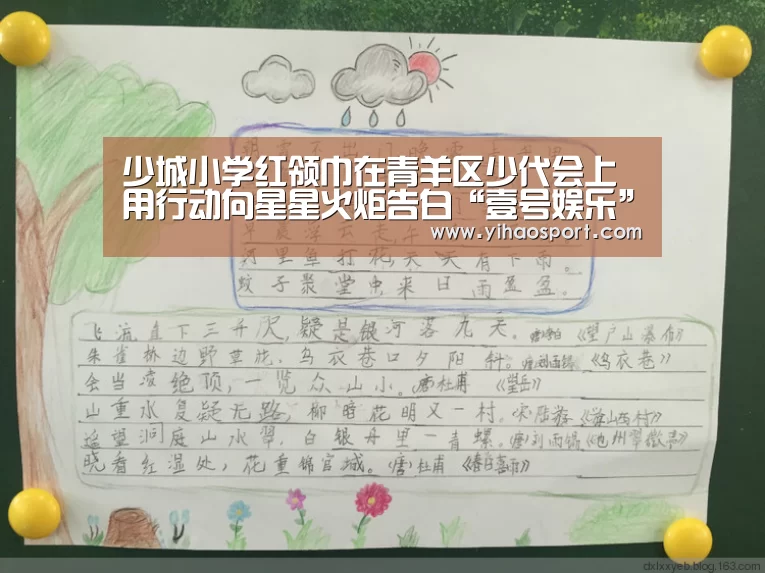 少城小学红领巾在青羊区少代会上
用行动向星星火炬告白“壹号娱乐”
www.yihaosport.com
河里鱼打花,天天有下雨。
蚊子聚堂中,来日雨盈盈。
飞流直下三千尺,疑是银河落九天。《望户山瀑布》
朱雀桥边野草花,乌衣巷口夕阳斜。《乌衣巷》
会当凌绝顶,一览众山小。唐杜甫《望岳》
山重水复疑无路,柳暗花明又一村。宋陆游《游山西村》
遥望洞庭山水翠,白银丹里一青螺。
晓看红湿处,花重锦官城。(唐)杜甫《春日喜雨》
dxlxxyeb.blog.163.com